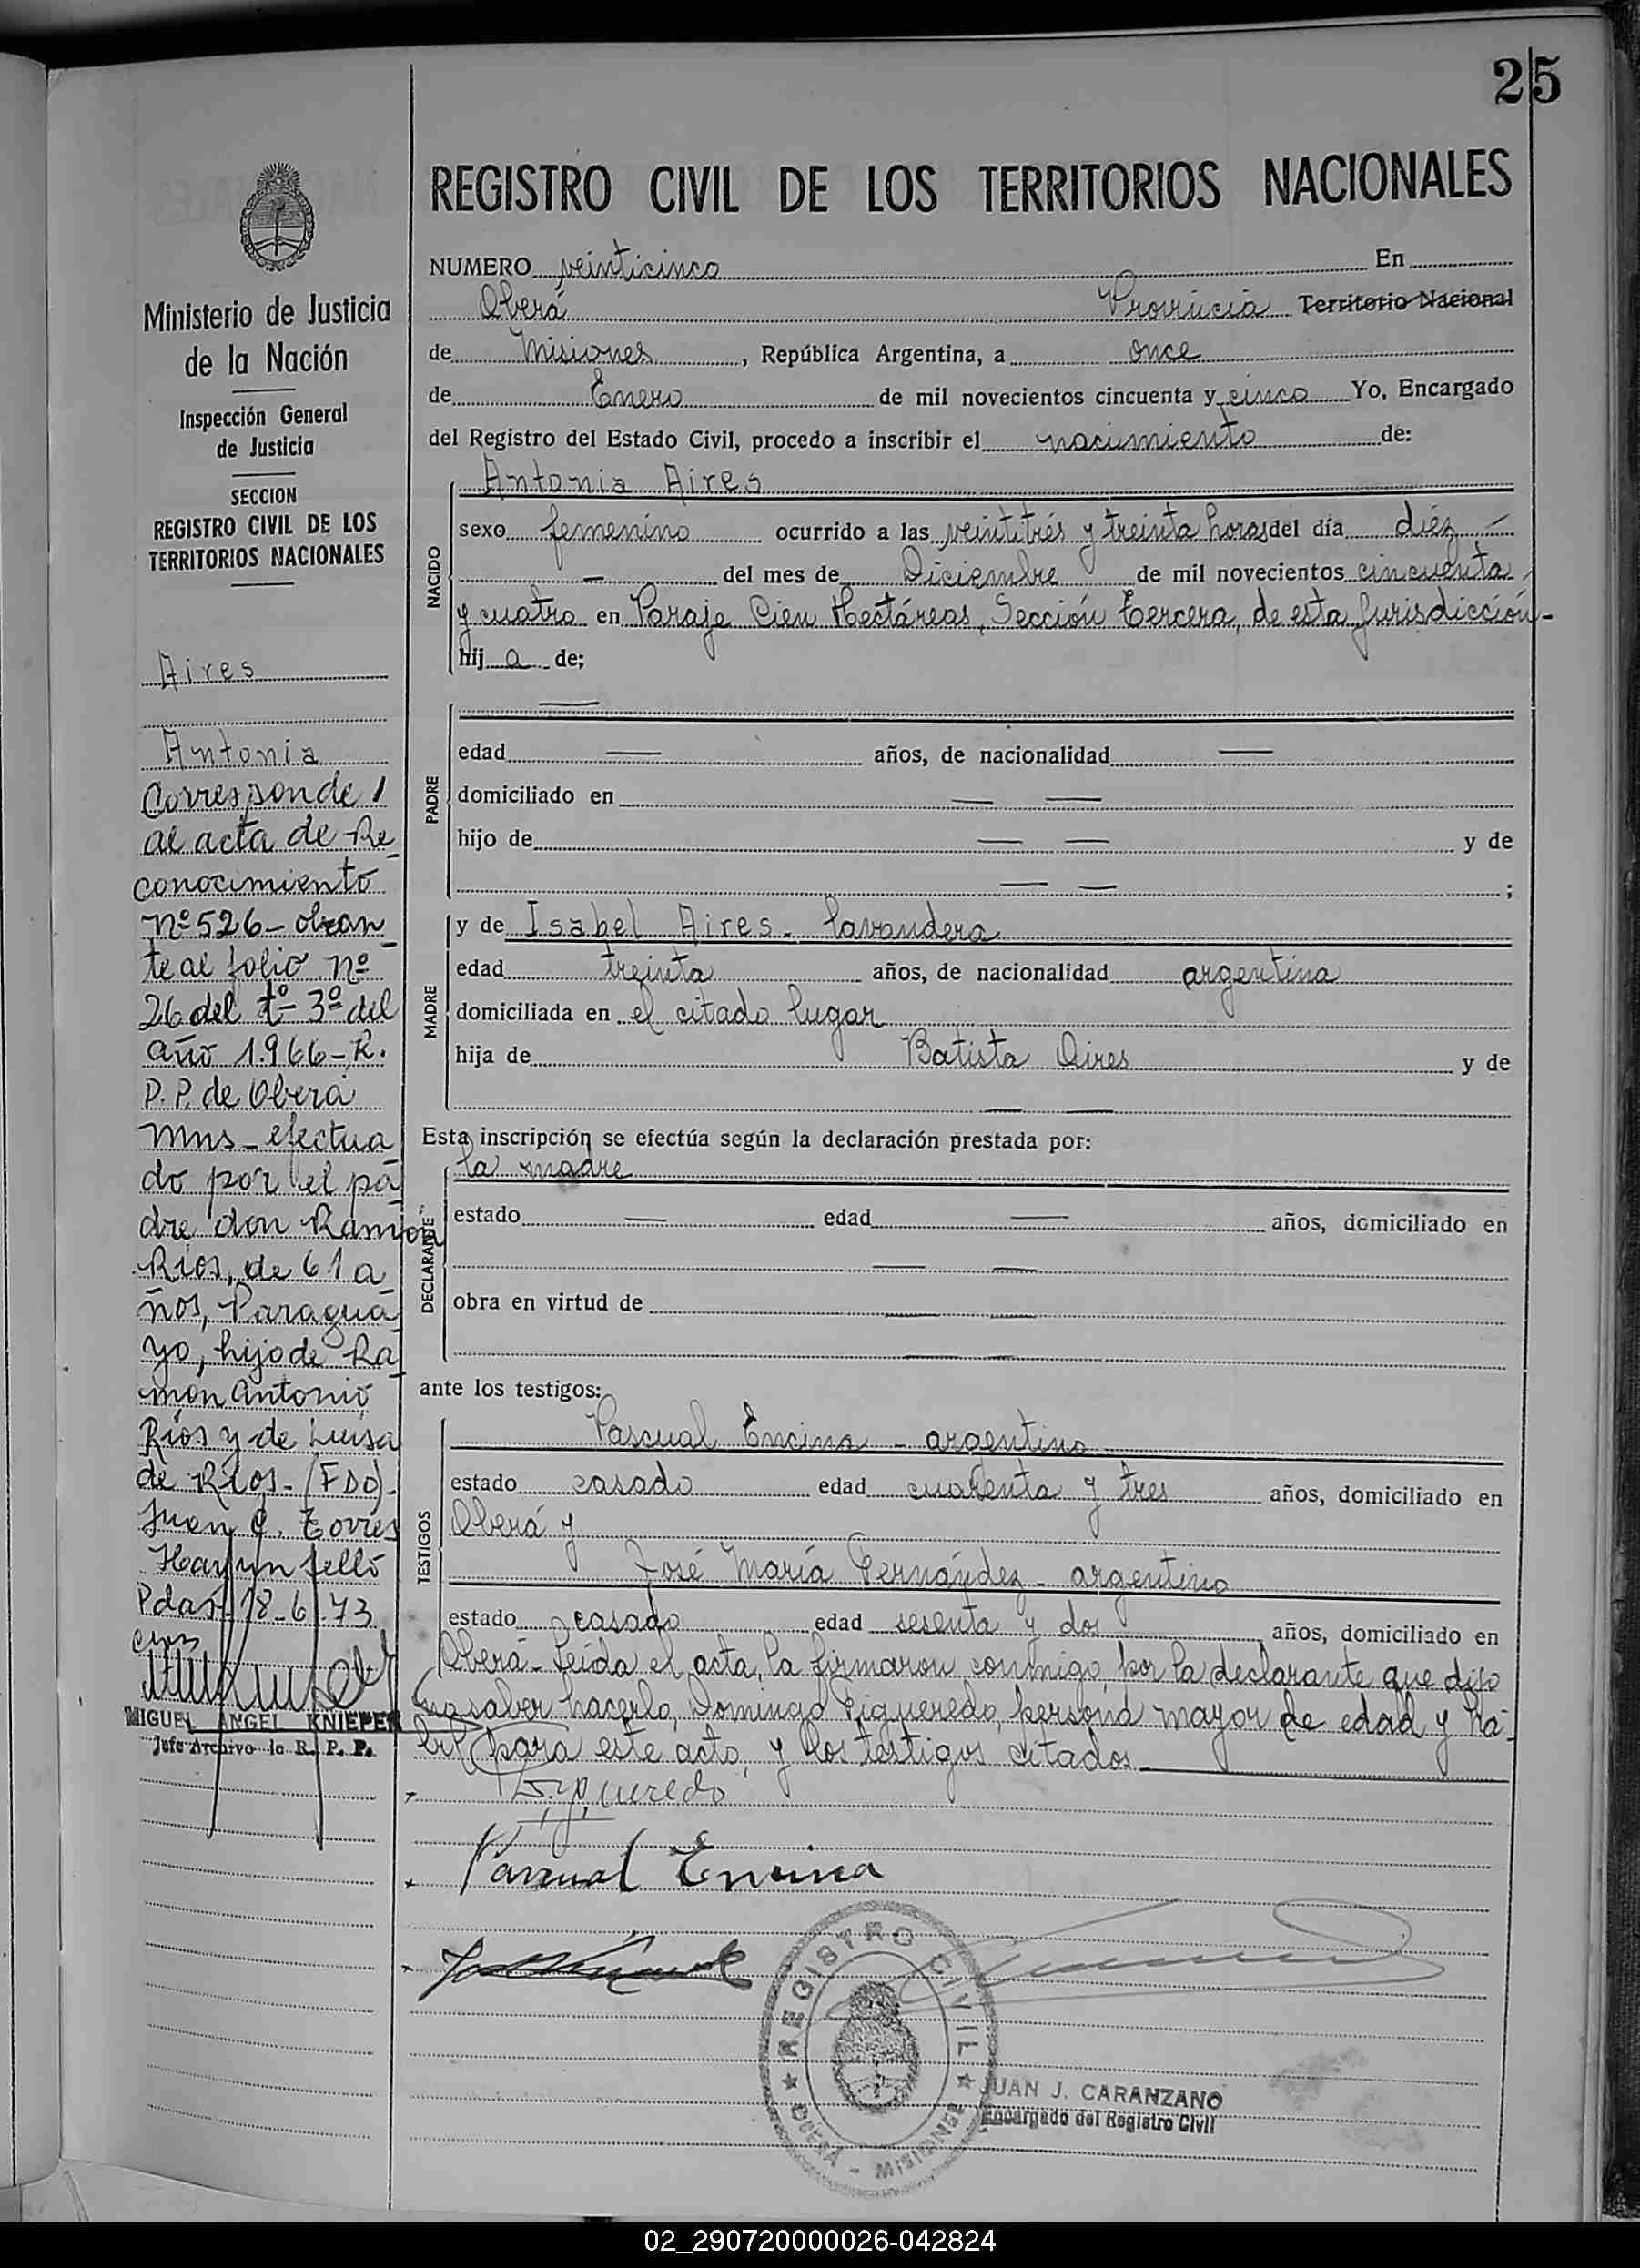 25
REGISTRO CIVIL DE LOS TERRITORIOS NACIONALES
NUMERO veinticinco En
Oberá Provincia Territorio Nacional
de Misiones, República Argentina, a once
de Enero de mil novecientos cincuenta y cinco Yo, Encargado
del Registro del Estado Civil, procedo a inscribir el nacimiento de:
NACIDO
Antonia Aires
sexo femenino ocurrido a las veintitrés y treinta horas del día diéz —
— del mes de Diciembre de mil novecientos cincuenta
y cuatro en Paraje Cien Hectáreas, Sección Tercera, de esta Jurisdicción-
hij a de;
PADRE
—
edad — años, de nacionalidad —
domiciliado en — —
hijo de — — y de
— — ;
MADRE
y de Isabel Aires - lavandera
edad treinta años, de nacionalidad argentina
domiciliada en el citado lugar
hija de Batista Aires y de
— —
Esta inscripción se efectúa según la declaración prestada por:
DECLARANTE
la madre
estado — edad — años, domiciliado en
— —
obra en virtud de — —
— —
ante los testigos:
TESTIGOS
Pascual Encina - argentino
estado casado edad cuarenta y tres años, domiciliado en
Oberá y
José María Fernández - argentino
estado casado edad sesenta y dos años, domiciliado en
Oberá - Leída el acta, la firmaron conmigo, por la declarante que dijo
no saber hacerlo, Domingo Figueredo, persona mayor de edad y há-
bil para este acto, y los testigos citados
Figueredo
Pascual Encina
REGISTRO CIVIL
OBERA - MISIONES
JUAN J. CARANZANO
Encargado del Registro Civil
Ministerio de Justicia
de la Nación
Inspección General
de Justicia
SECCION
REGISTRO CIVIL DE LOS
TERRITORIOS NACIONALES
Aires
Antonia
Corresponde /
al acta de Re-
conocimiento
nº 526 - obran-
te al folio nº
26 del tº 3º del
año 1.966 - R.
P. P. de Oberá
Mns - efectua-
do por el pa-
dre don Ramón
Rios, de 61 a-
ños, Paragua-
yo, hijo de Ra-
món Antonio
Rios y de Luisa
de Rios - (FDO) -
Juan C. Torres
Hay un sello
Pdas 18-6-73
MIGUEL ANGEL KNIEPER
Jefe Archivo de R. P. P.
02_290720000026-042824